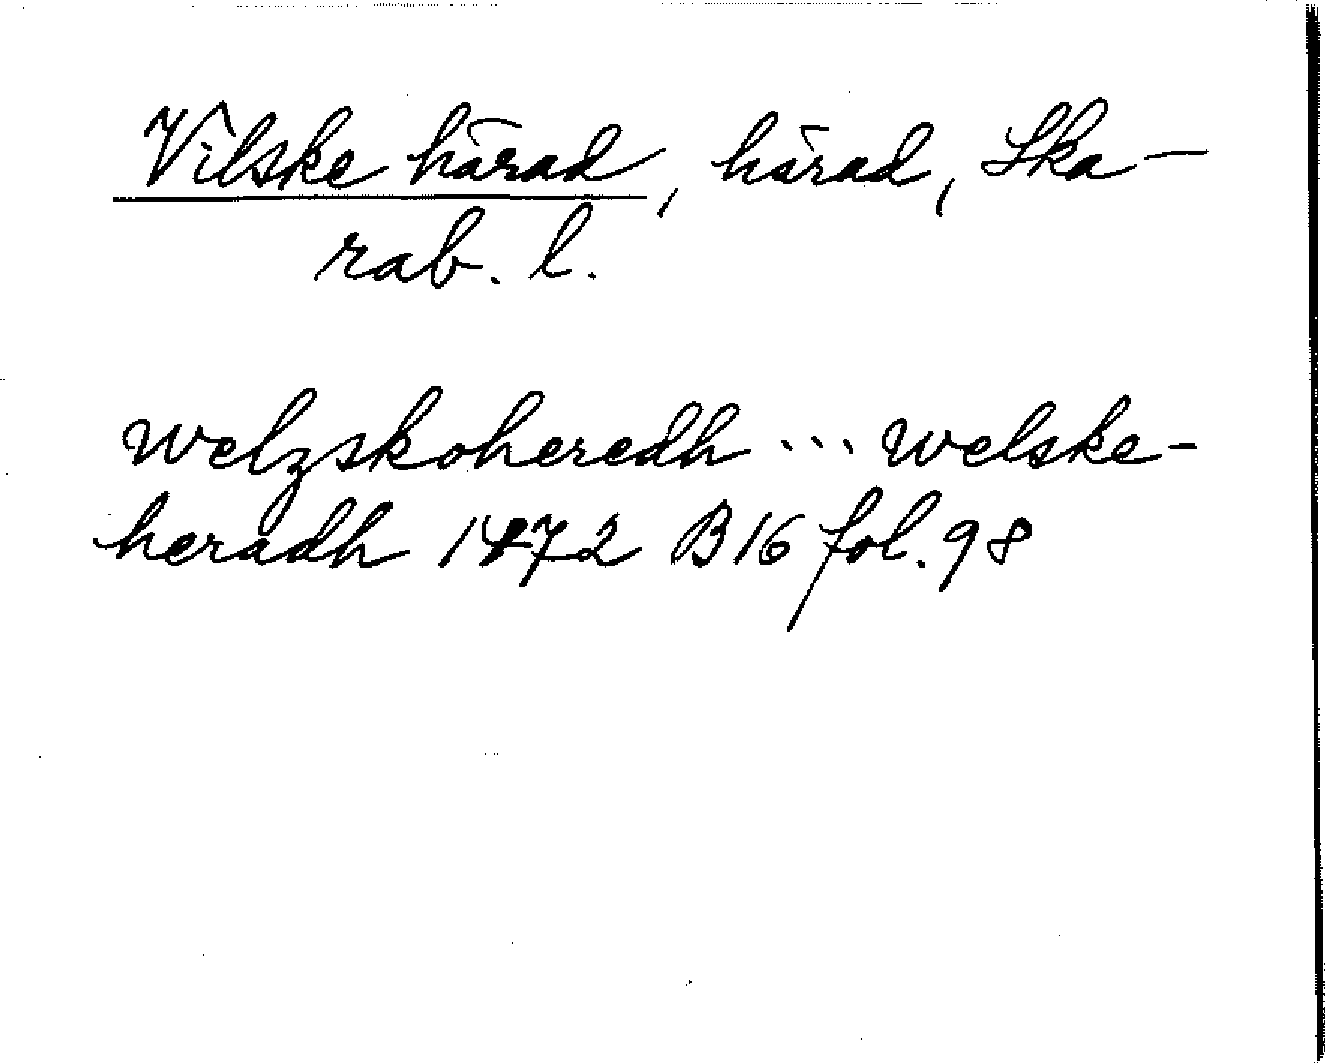 Vilske härad, härad, Ska-
rab. l.
welzskoheredh ... welske-
heradh 1472 B16 fol. 98